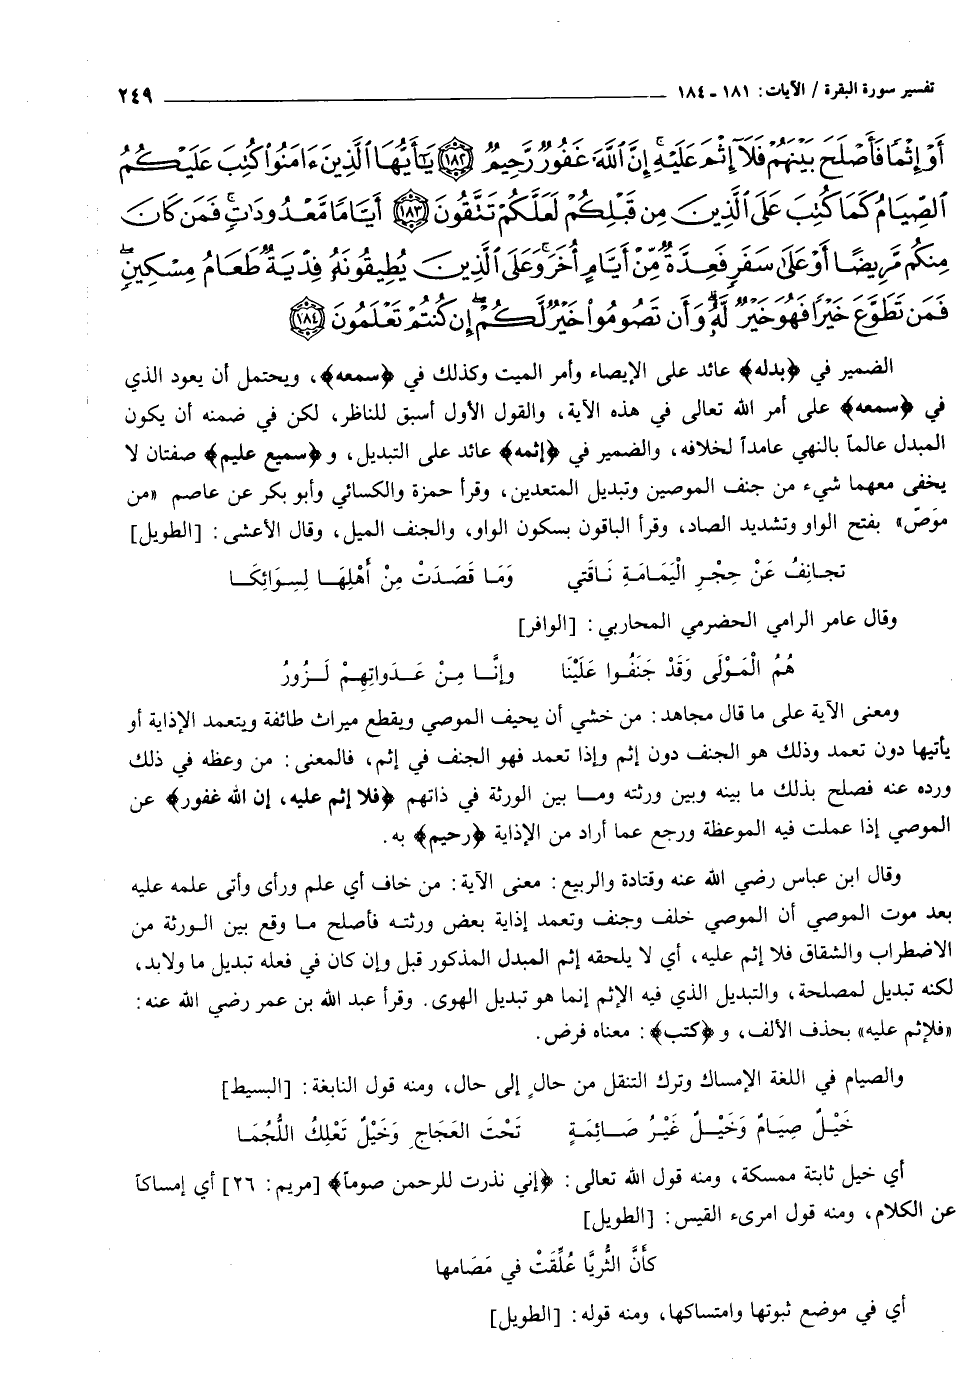 تفسير سورة البقرة / الآيات: ١٨١ ـ ١٨٤ ٢٤٩
أَوْ إِثْمًا فَأَصْلَحَ بَيْنَهُمْ فَلَآ إِثْمَ عَلَيْهِ إِنَّ ٱللَّهَ غَفُورٌ رَّحِيمٌ ١٨٢ يَٰٓأَيُّهَا ٱلَّذِينَ ءَامَنُوا۟ كُتِبَ عَلَيْكُمُ
ٱلصِّيَامُ كَمَا كُتِبَ عَلَى ٱلَّذِينَ مِن قَبْلِكُمْ لَعَلَّكُمْ تَتَّقُونَ ١٨٣ أَيَّامًا مَّعْدُودَٰتٍ فَمَن كَانَ
مِنكُم مَّرِيضًا أَوْ عَلَىٰ سَفَرٍ فَعِدَّةٌ مِّنْ أَيَّامٍ أُخَرَ وَعَلَى ٱلَّذِينَ يُطِيقُونَهُۥ فِدْيَةٌ طَعَامُ مِسْكِينٍ
فَمَن تَطَوَّعَ خَيْرًا فَهُوَ خَيْرٌ لَّهُۥ وَأَن تَصُومُوا۟ خَيْرٌ لَّكُمْ إِن كُنتُمْ تَعْلَمُونَ ١٨٤
الضمير في ﴿بدله﴾ عائد على الإيصاء وأمر الميت وكذلك في ﴿سمعه﴾، ويحتمل أن يعود الذي
في ﴿سمعه﴾ على أمر الله تعالى في هذه الآية، والقول الأول أسبق للناظر، لكن في ضمنه أن يكون
المبدل عالماً بالنهي عامداً لخلافه، والضمير في ﴿إثمه﴾ عائد على التبديل، و ﴿سميع عليم﴾ صفتان لا
يخفى معهما شيء من جنف الموصين وتبديل المتعدين، وقرأ حمزة والكسائي وأبو بكر عن عاصم «من
موَصّ» بفتح الواو وتشديد الصاد، وقرأ الباقون بسكون الواو، والجنف الميل، وقال الأعشى: [الطويل]
تجانِفُ عَنْ حِجْرِ الْيَمَامَةِ نَاقَتي وَمَا قَصَدَتْ مِنْ أَهْلِهَا لِسِوَائِكَا
وقال عامر الرامي الحضرمي المحاربي: [الوافر]
هُمُ الْمَوْلَى وَقَدْ جَنَفُوا عَلَيْنَا وإنَّا مِنْ عَدَواتِهِمْ لَزُورُ
ومعنى الآية على ما قال مجاهد: من خشي أن يحيف الموصي ويقطع ميراث طائفة ويتعمد الإذاية أو
يأتيها دون تعمد وذلك هو الجنف دون إثم وإذا تعمد فهو الجنف في إثم، فالمعنى: من وعظه في ذلك
ورده عنه فصلح بذلك ما بينه وبين ورثته وما بين الورثة في ذاتهم ﴿فلا إثم عليه، إن الله غفور﴾ عن
الموصي إذا عملت فيه الموعظة ورجع عما أراد من الإذاية ﴿رحيم﴾ به.
وقال ابن عباس رضي الله عنه وقتادة والربيع: معنى الآية: من خاف أي علم ورأى وأتى علمه عليه
بعد موت الموصي أن الموصي خلف وجنف وتعمد إذاية بعض ورثته فأصلح ما وقع بين الورثة من
الاضطراب والشقاق فلا إثم عليه، أي لا يلحقه إثم المبدل المذكور قبل وإن كان في فعله تبديل ما ولابد،
لكنه تبديل لمصلحة، والتبديل الذي فيه الإثم إنما هو تبديل الهوى. وقرأ عبد الله بن عمر رضي الله عنه:
«فلإثم عليه» بحذف الألف، و ﴿كتب﴾: معناه فرض.
والصيام في اللغة الإمساك وترك التنقل من حالٍ إلى حال، ومنه قول النابغة: [البسيط]
خَيْلٌ صِيَامٌ وَخَيْلٌ غَيْرُ صَائِمَةٍ تَحْتَ العَجَاجِ وَخَيْلٌ تَعْلِكُ اللُّجُمَا
أي خيل ثابتة ممسكة، ومنه قول الله تعالى: ﴿إني نذرت للرحمن صوماً﴾ [مريم: ٢٦] أي إمساكاً
عن الكلام، ومنه قول امرىء القيس: [الطويل]
كأَنَّ الثُّريَّا عُلِّقَتْ في مَصَامها
أي في موضع ثبوتها وامتساكها، ومنه قوله: [الطويل]